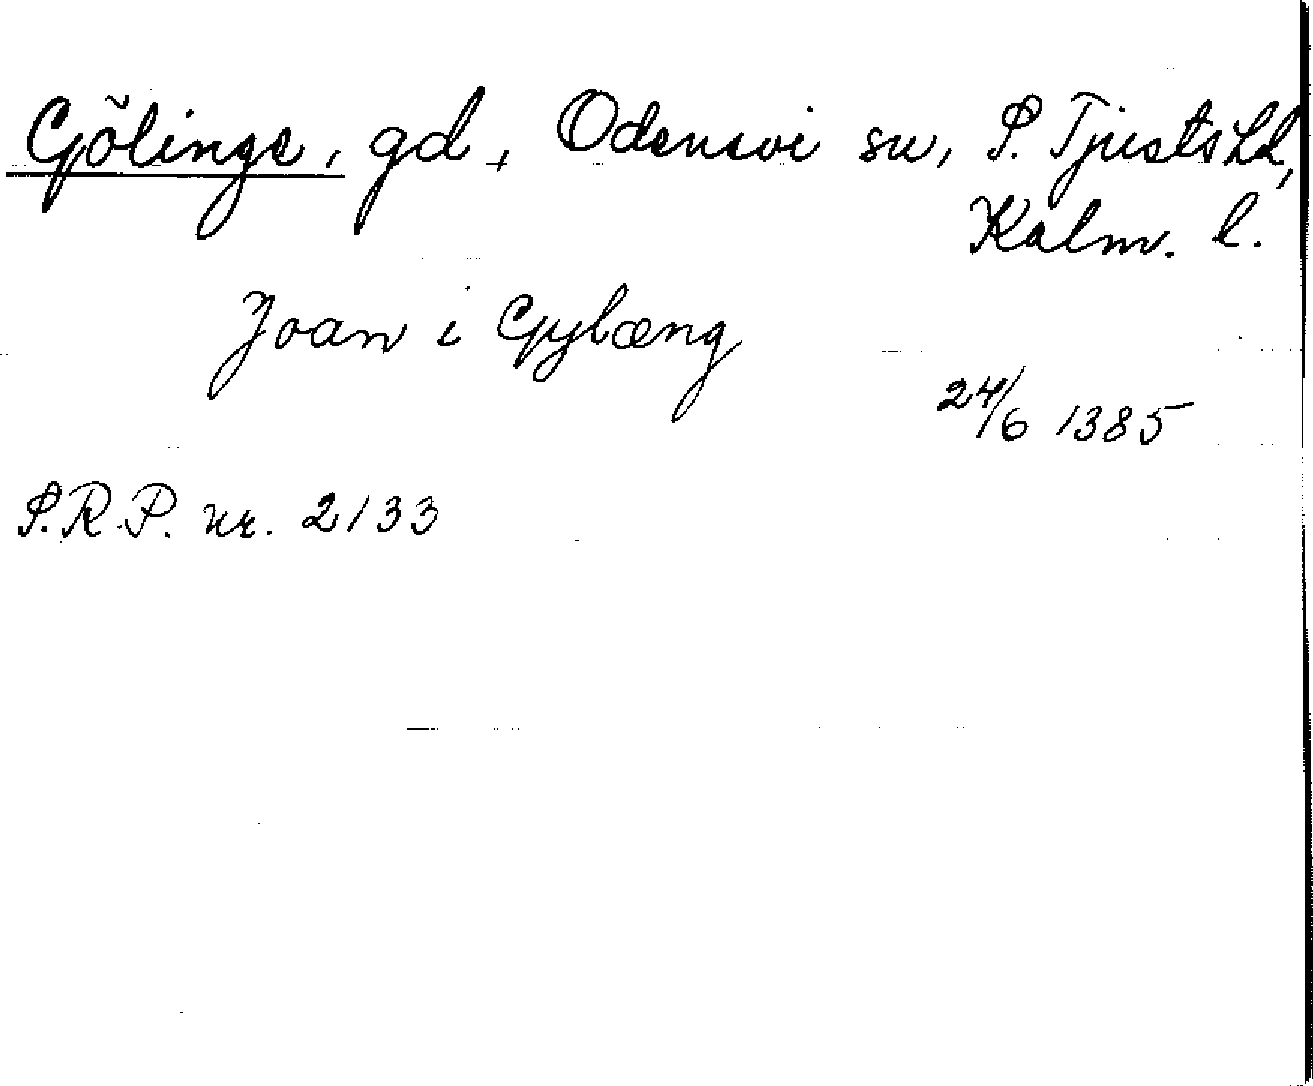 Gölinge, gd, Odensvi sn, S. Tjusts hd,
Kalm. l.
Joan i Gylæng
24/6 1385
S.R.P. nr. 2133